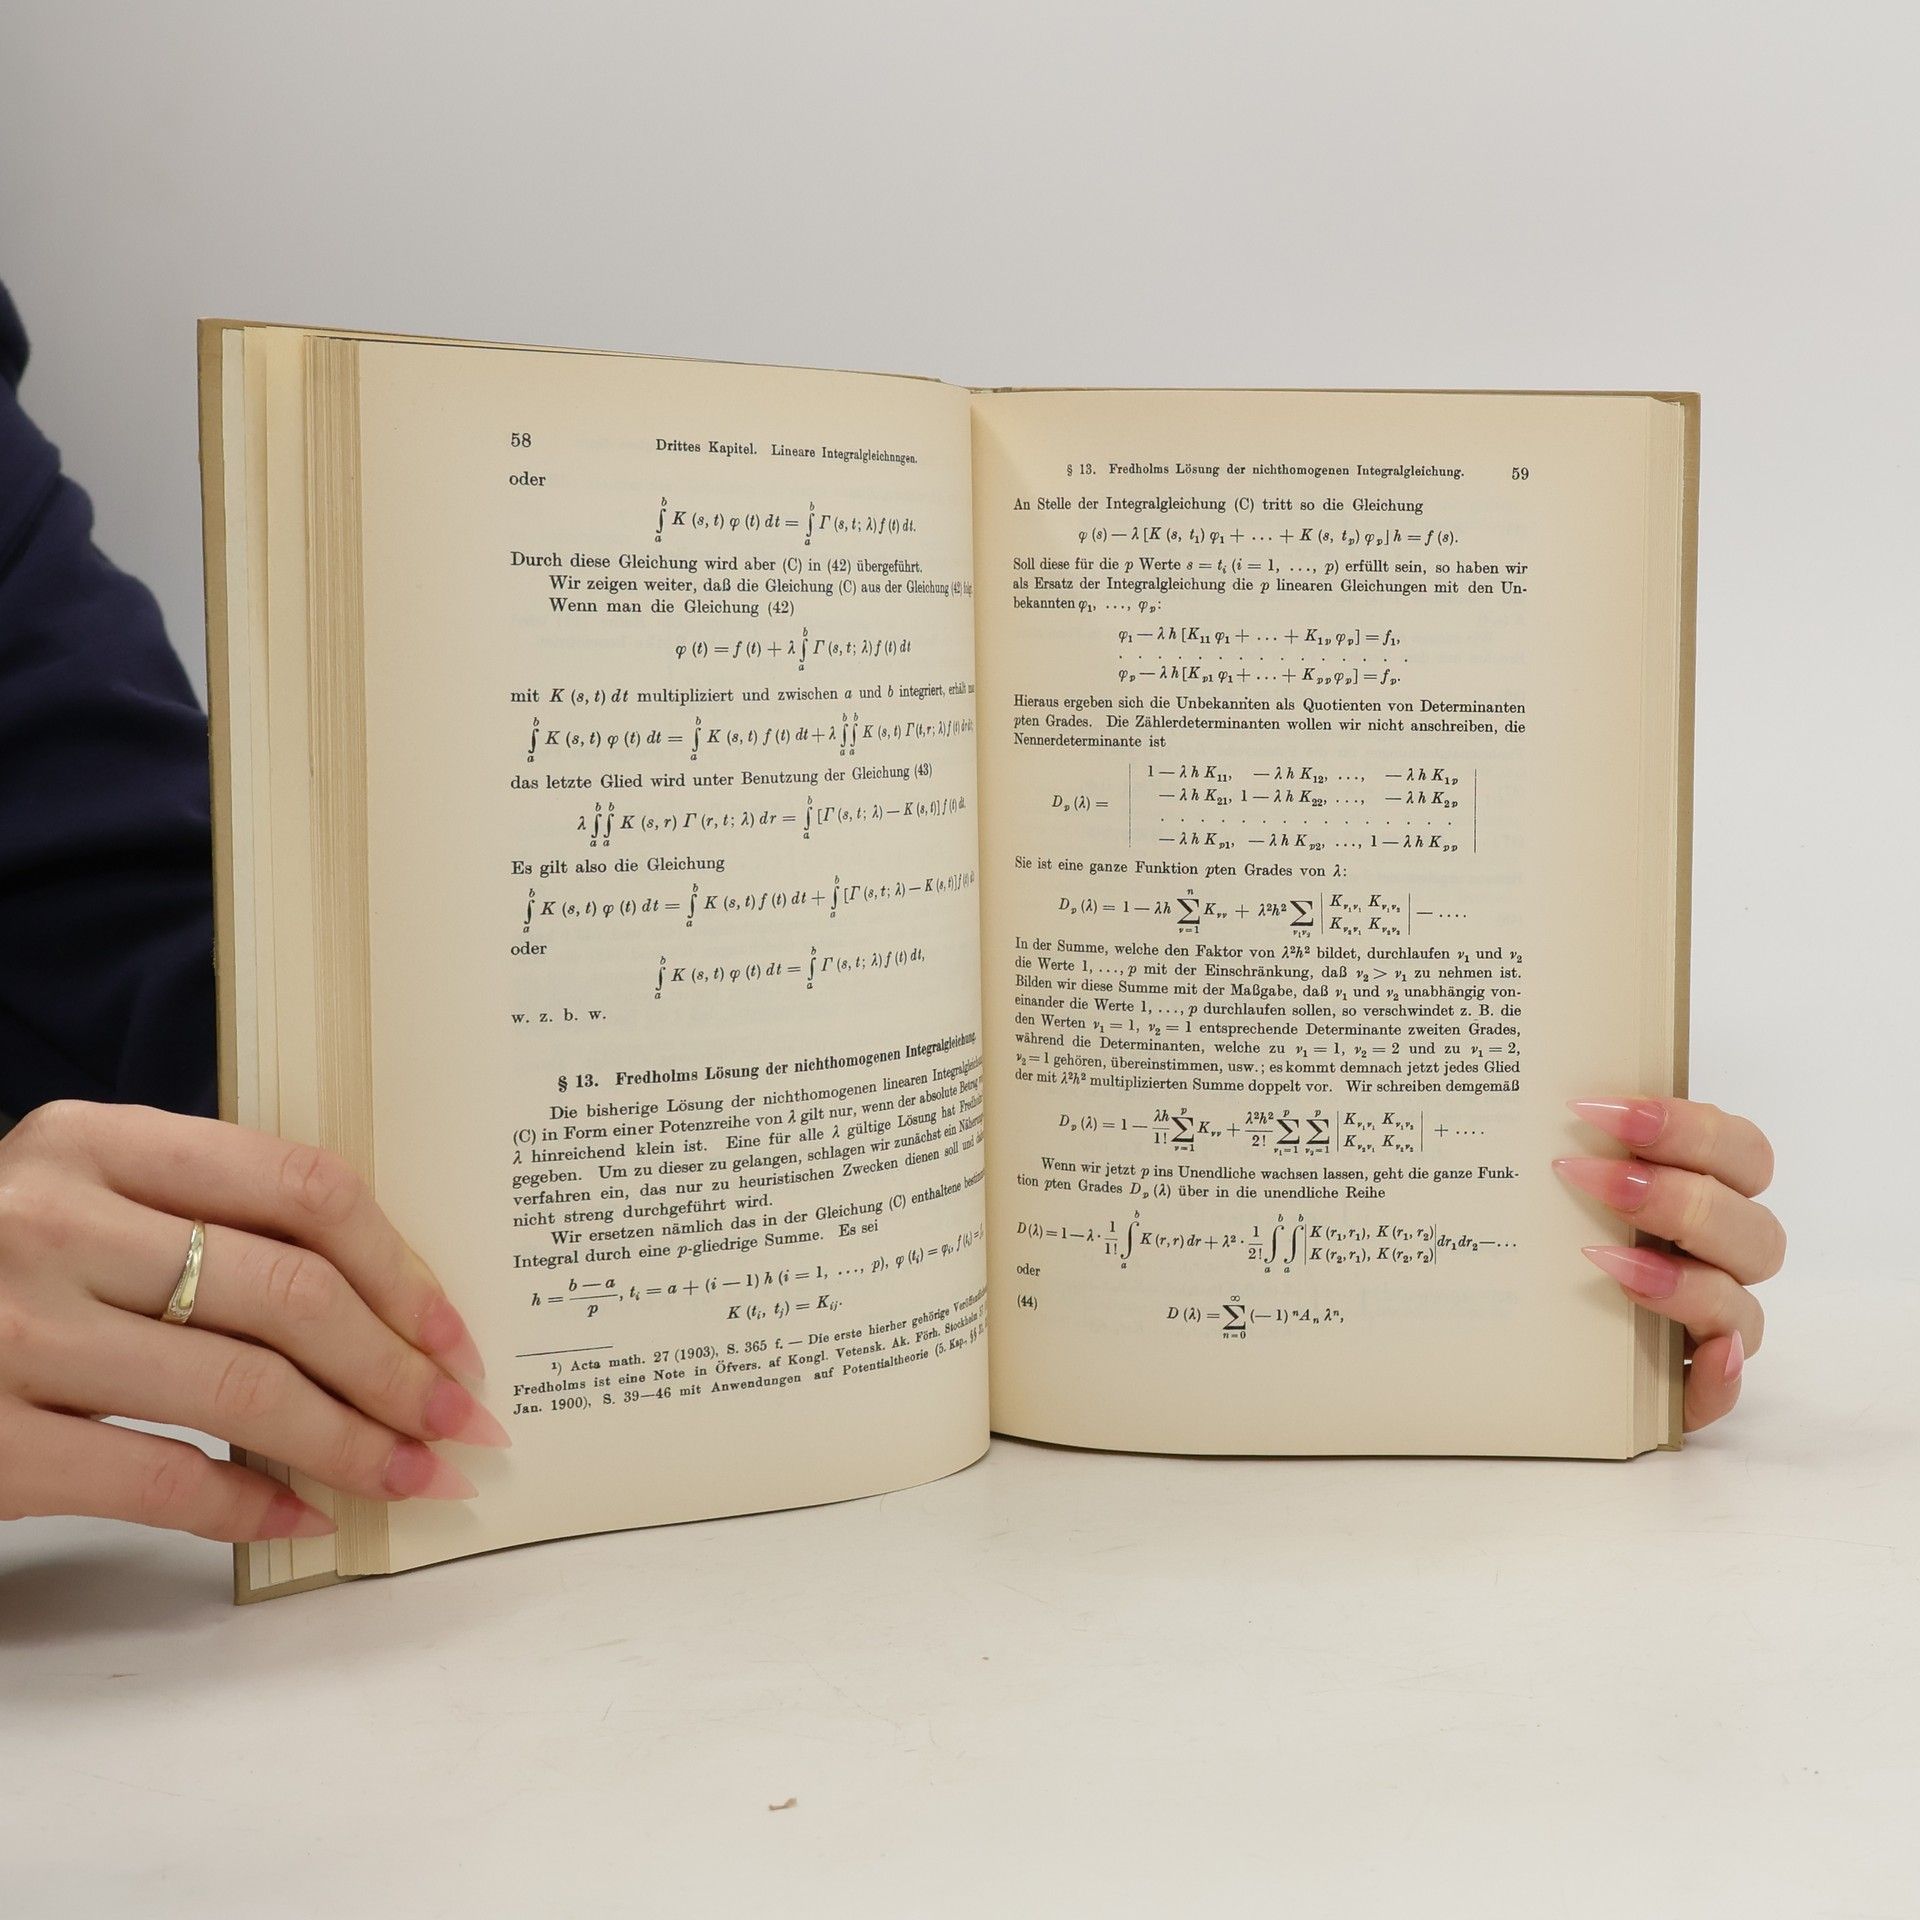 58 Drittes Kapitel. Lineare Integralgleichungen.
oder
∫_a^b K (s, t) φ (t) dt = ∫_a^b Γ (s, t; λ) f (t) dt.
Durch diese Gleichung wird aber (C) in (42) übergeführt.
Wir zeigen weiter, daß die Gleichung (C) aus der Gleichung (42)
Wenn man die Gleichung (42)
φ (t) = f (t) + λ ∫_a^b Γ (s, t; λ) f (t) dt
mit K (s, t) dt multipliziert und zwischen a und b integriert, erhält
∫_a^b K (s, t) φ (t) dt = ∫_a^b K (s, t) f (t) dt + λ ∫_a^b ∫_a^b K (s, t) Γ (t, r; λ) f (t) dr dt,
das letzte Glied wird unter Benutzung der Gleichung (43)
λ ∫_a^b ∫_a^b K (s, r) Γ (r, t; λ) dr = ∫_a^b [Γ (s, t; λ) — K (s, t)] f (t) dt.
Es gilt also die Gleichung
∫_a^b K (s, t) φ (t) dt = ∫_a^b K (s, t) f (t) dt + ∫_a^b [Γ (s, t; λ) — K (s, t)] f (t) dt
oder
∫_a^b K (s, t) φ (t) dt = ∫_a^b Γ (s, t; λ) f (t) dt,
w. z. b. w.
§ 13. Fredholms Lösung der nichthomogenen Integralgleichung.
Die bisherige Lösung der nichthomogenen linearen Integralgleichung
(C) in Form einer Potenzreihe von λ gilt nur, wenn der absolute Betrag
λ hinreichend klein ist. Eine für alle λ gültige Lösung hat
gegeben. Um zu dieser zu gelangen, schlagen wir zunächst ein
verfahren ein, das nur zu heuristischen Zwecken dienen soll und
nicht streng durchgeführt wird.
Wir ersetzen nämlich das in der Gleichung (C) enthaltene
Integral durch eine p-gliedrige Summe. Es sei
h = (b — a)/p, t_i = a + (i — 1) h (i = 1, ..., p), φ (t_i) = φ_i, f (t_i) =
K (t_i, t_j) = K_ij.
¹) Acta math. 27 (1903), S. 365 f. — Die erste hierher gehörige
Fredholms ist eine Note in Öfvers. af Kongl. Vetensk. Ak. Förh. Stockholm 57
Jan. 1900), S. 39—46 mit Anwendungen auf Potentialtheorie (5. Kap., §§
§ 13. Fredholms Lösung der nichthomogenen Integralgleichung. 59
An Stelle der Integralgleichung (C) tritt so die Gleichung
φ (s) — λ [K (s, t₁) φ₁ + ... + K (s, t_p) φ_p] h = f (s).
Soll diese für die p Werte s = t_i (i = 1, ..., p) erfüllt sein, so haben wir
als Ersatz der Integralgleichung die p linearen Gleichungen mit den Un-
bekannten φ₁, ..., φ_p:
φ₁ — λ h [K₁₁ φ₁ + ... + K_1p φ_p] = f₁,
. . . . . . . . . . . . . . .
φ_p — λ h [K_p1 φ₁ + ... + K_pp φ_p] = f_p.
Hieraus ergeben sich die Unbekannten als Quotienten von Determinanten
pten Grades. Die Zählerdeterminanten wollen wir nicht anschreiben, die
Nennerdeterminante ist
1 — λ h K₁₁, — λ h K₁₂, ..., — λ h K_1p
D_p (λ) = | — λ h K₂₁, 1 — λ h K₂₂, ..., — λ h K_2p |
. . . . . . . . . . . . . . .
— λ h K_p1, — λ h K_p2, ..., 1 — λ h K_pp
Sie ist eine ganze Funktion pten Grades von λ:
D_p (λ) = 1 — λh ∑_{ν=1}^n K_νν + λ²h² ∑_{ν₁ν₂} | K_ν₁ν₁ K_ν₁ν₂ ; K_ν₂ν₁ K_ν₂ν₂ | — ....
In der Summe, welche den Faktor von λ²h² bildet, durchlaufen ν₁ und ν₂
die Werte 1, ..., p mit der Einschränkung, daß ν₂ > ν₁ zu nehmen ist.
Bilden wir diese Summe mit der Maßgabe, daß ν₁ und ν₂ unabhängig von-
einander die Werte 1, ..., p durchlaufen sollen, so verschwindet z. B. die
den Werten ν₁ = 1, ν₂ = 1 entsprechende Determinante zweiten Grades,
während die Determinanten, welche zu ν₁ = 1, ν₂ = 2 und zu ν₁ = 2,
ν₂ = 1 gehören, übereinstimmen, usw.; es kommt demnach jetzt jedes Glied
der mit λ²h² multiplizierten Summe doppelt vor. Wir schreiben demgemäß
D_p (λ) = 1 — λh/1! ∑_{ν=1}^p K_νν + λ²h²/2! ∑_{ν₁=1}^p ∑_{ν₂=1}^p | K_ν₁ν₁ K_ν₁ν₂ ; K_ν₂ν₁ K_ν₂ν₂ | + ....
Wenn wir jetzt p ins Unendliche wachsen lassen, geht die ganze Funk-
tion pten Grades D_p (λ) über in die unendliche Reihe
D (λ) = 1 — λ · 1/1! ∫_a^b K (r, r) dr + λ² · 1/2! ∫_a^b ∫_a^b | K (r₁, r₁), K (r₁, r₂) ; K (r₂, r₁), K (r₂, r₂) | dr₁ dr₂ — ...
oder
(44) D (λ) = ∑_{n=0}^∞ (— 1)ⁿ A_n λⁿ,